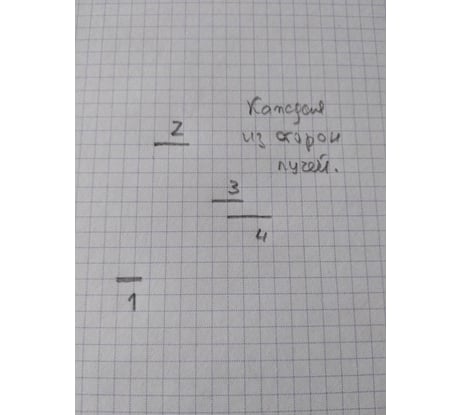 2
Каждая
из сторон
лучей.
3
4
1